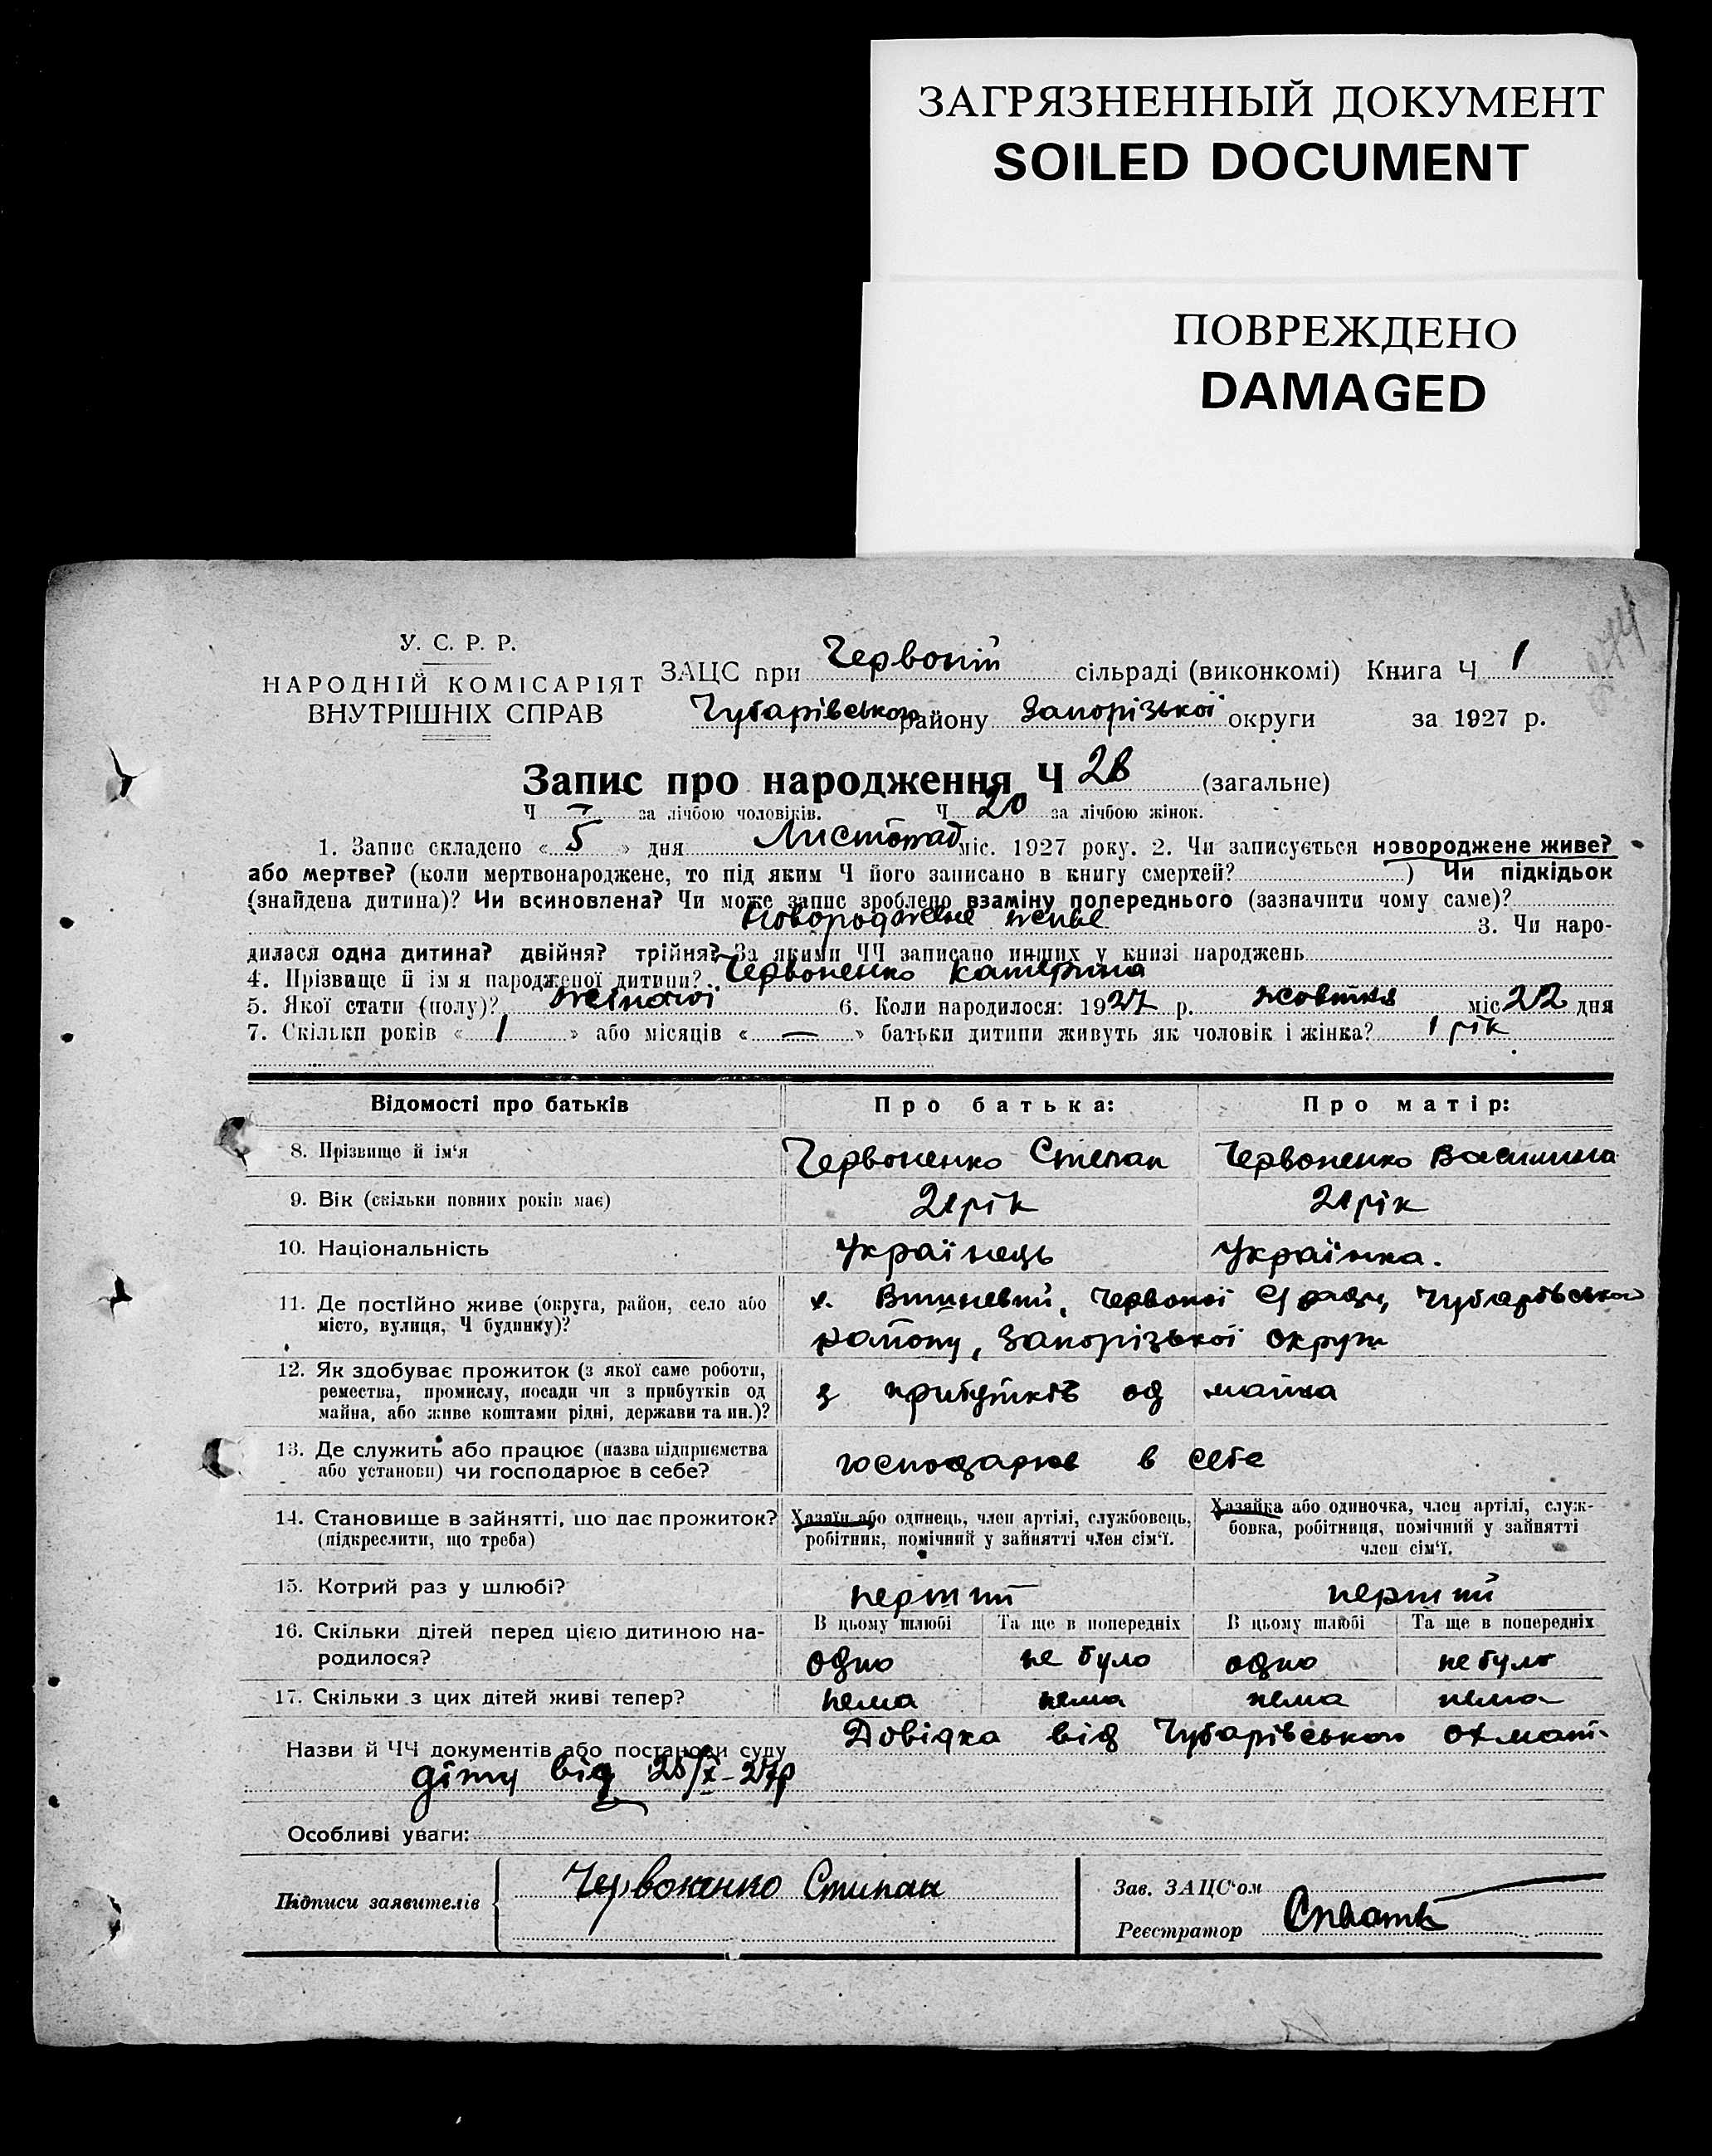 ЗАГРЯЗНЕННЫЙ ДОКУМЕНТ
SOILED DOCUMENT
ПОВРЕЖДЕНО
DAMAGED
У. С. Р. Р.
НАРОДНІЙ КОМІСАРІЯТ
ВНУТРІШНІХ СПРАВ
ЗАЦС при Червоній сільраді (виконкомі) Книга Ч 1
Чубарівського району Запорізької округи за 1927 р.
Запис про народження Ч 28 (загальне)
Ч — за лічбою чоловіків. Ч 20 за лічбою жінок.
1. Запис складено « 5 » дня Листопад міс. 1927 року. 2. Чи записується новороджене живе?
або мертве? (коли мертвонароджене, то під яким Ч його записано в книгу смертей? ) Чи підкідьок
(знайдена дитина)? Чи всиновлена? Чи може запис зроблено взаміну попереднього (зазначити чому саме)?
Новороджене живе 3. Чи наро-
дилася одна дитина? двійня? трійня? За якими ЧЧ записано инших у книзі народжень
4. Прізвище й ім'я народженої дитини? Червоненко Катерина
5. Якої стати (полу)? жіночої 6. Коли народилося: 1927 р. жовтня міс 22 дня
7. Скільки років « 1 » або місяців « — » батьки дитини живуть як чоловік і жінка? 1 рік
Відомості про батьків Про батька: Про матір:
8. Прізвище й ім'я Червоненко Степан Червоненко Василина
9. Вік (скільки повних років має) 21 рік 21 рік
10. Національність Українець Українка.
11. Де постійно живе (округа, район, село або
місто, вулиця, Ч будинку)?
х. Вишневий, Червоної С/ради, Чубарівського
району, Запорізької округи
12. Як здобуває прожиток (з якої саме роботи,
ремества, промислу, посади чи з прибутків од
майна, або живе коштами рідні, держави та ин.)?
з прибутків од майна
13. Де служить або працює (назва підприємства
або установи) чи господарює в себе?
господарює в себе
14. Становище в зайнятті, що дає прожиток?
(підкреслити, що треба)
Хазяїн або одинець, член артілі, службовець,
робітник, помічний у зайнятті член сім'ї.
Хазяйка або одиночка, член артілі, служ-
бовка, робітниця, помічний у зайнятті
член сім'ї.
15. Котрий раз у шлюбі? перший перший
16. Скільки дітей перед цією дитиною на-
родилося?
В цьому шлюбі Та ще в попередніх В цьому шлюбі Та ще в попередніх
одно не було одно не було
17. Скільки з цих дітей живі тепер? нема нема нема нема
Назви й ЧЧ документів або постанови суду Довідка від Чубарівського охмат-
діту від 25/X-27р
Особливі уваги:
Підписи заявителів Червоненко Стипан
Зав. ЗАЦС'ом
Реєстратор